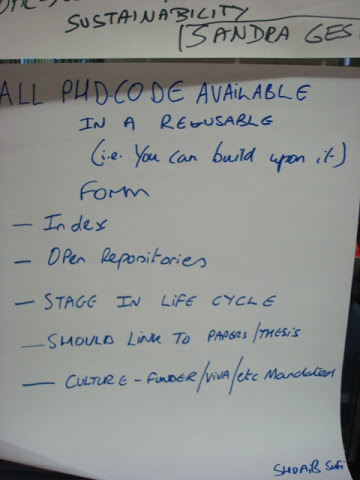 SUSTAINABILITY
SANDRA GES
ALL PHD-CODE AVAILABLE
IN A REUSABLE
(i.e. You can build upon it)
FORM
— Index
— Open Repositories
— STAGE IN LIFE CYCLE
— SHOULD LINK TO PAPERS/THESIS
— CULTURE - FUNDER/VIVA/etc Mandates
SHOAIB Sufi